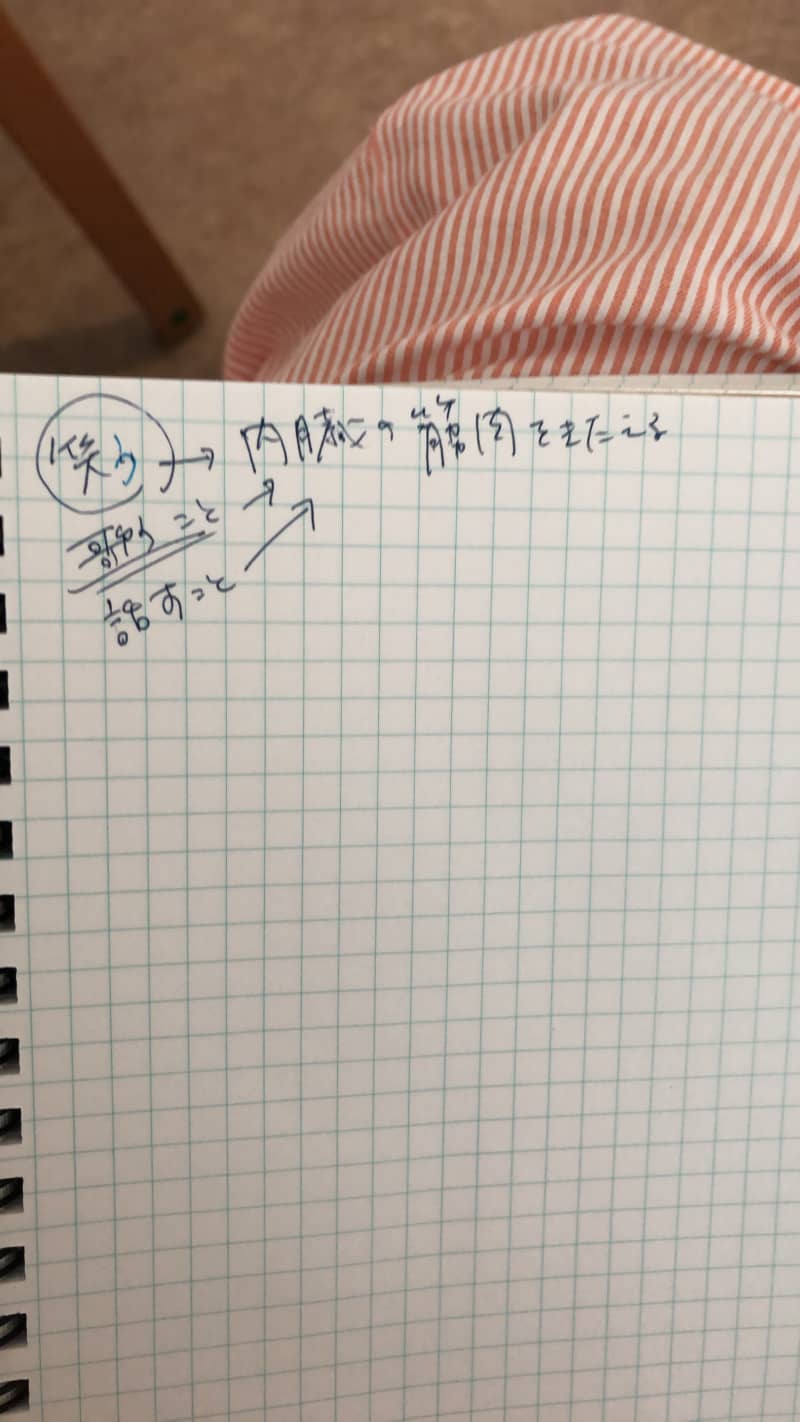 笑う → 内臓の筋肉をきたえる
歌うこと
話すこと